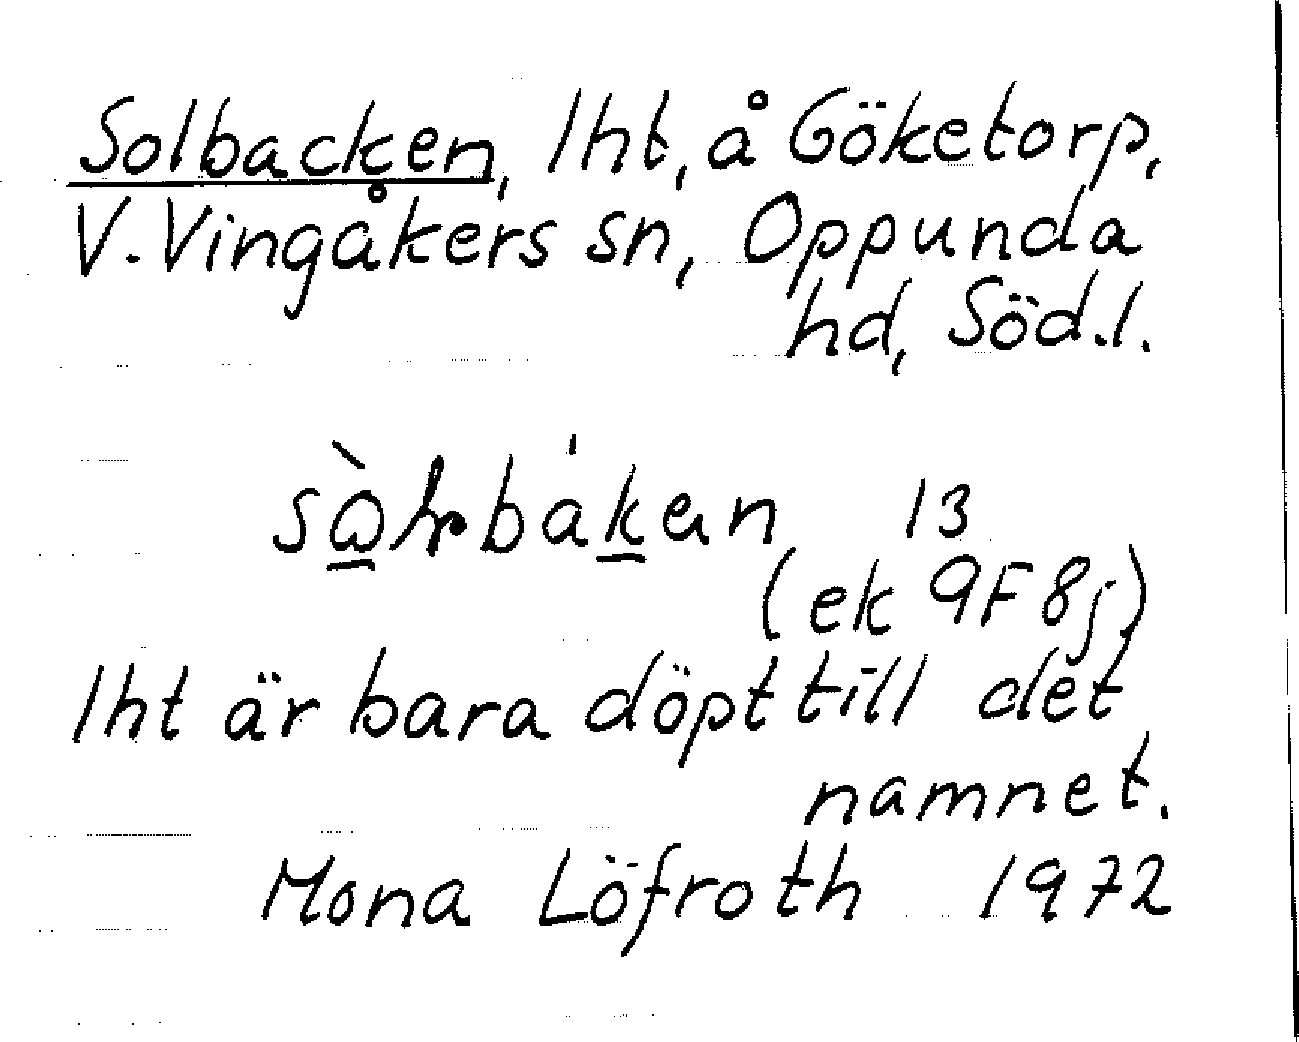 Solbacken, lht, å Göketorp,
V. Vingåkers sn, Oppunda
hd, Söd.l.
13
(ek 9F8j)
lht är bara döpt till det
namnet.
Mona Löfroth 1972